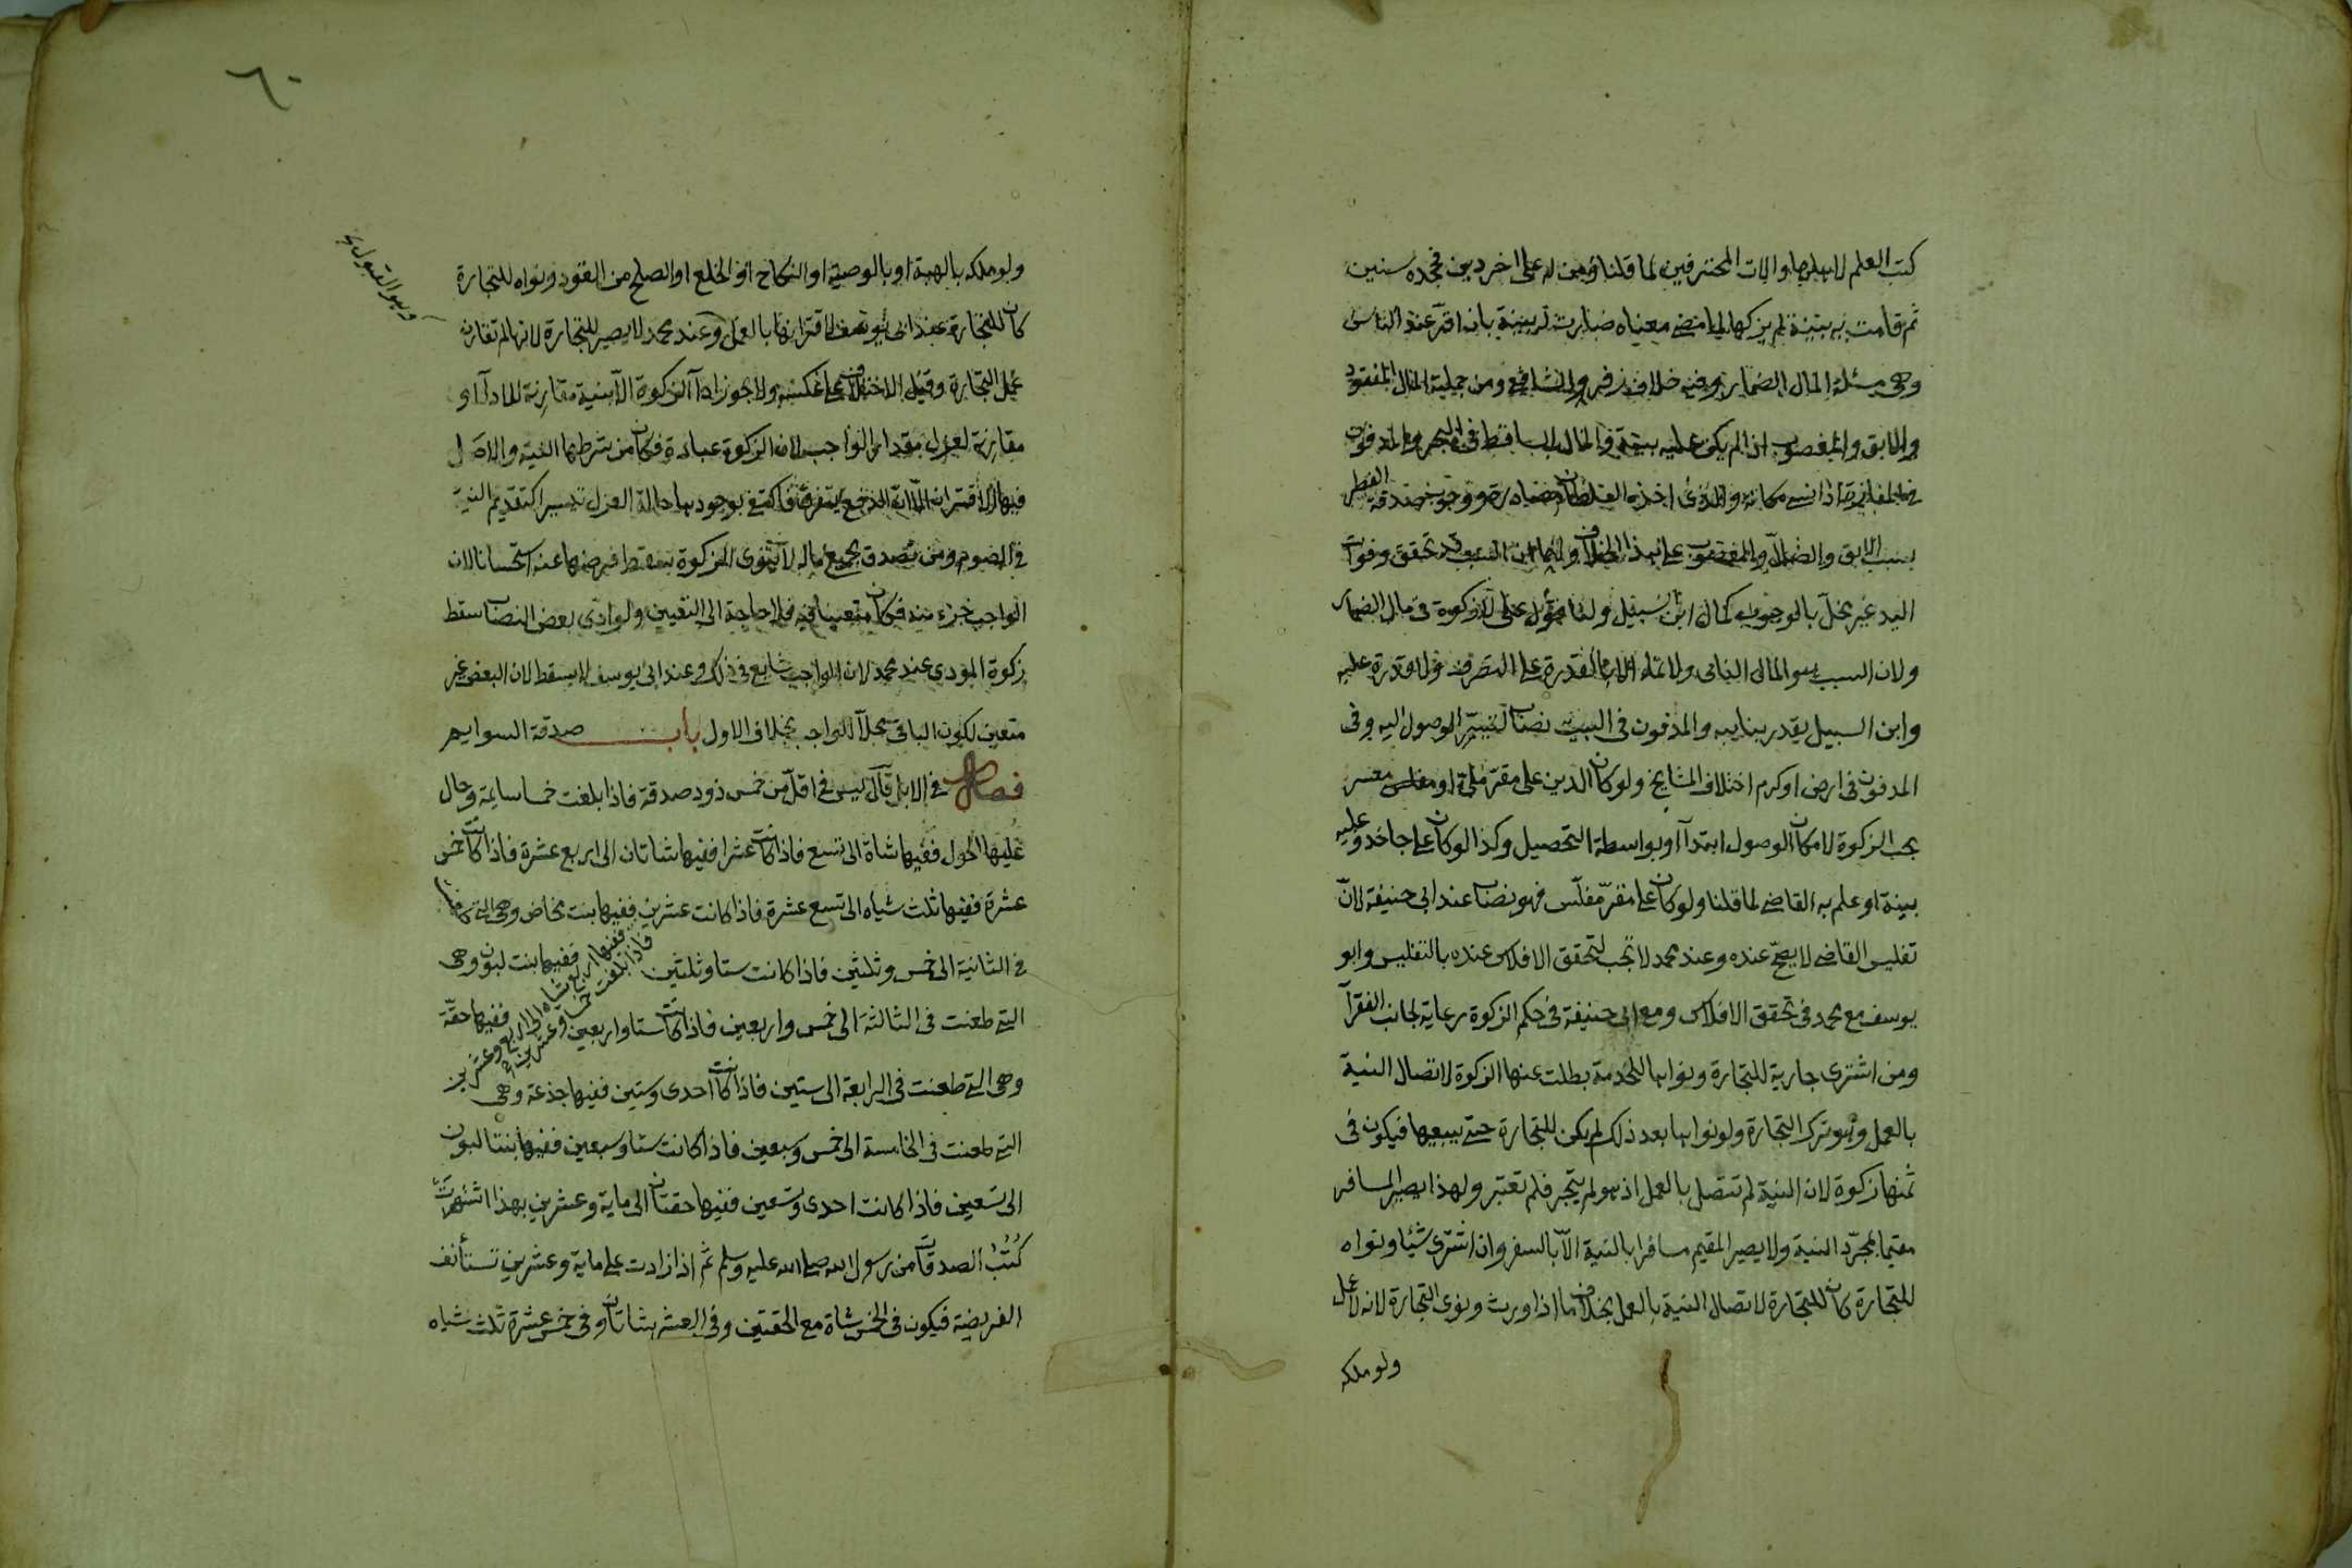 كتب العلم لاهلها والات المحترفين لما قلنا ومن له على اخر دين فجحده سنين
ثم قامت به بينة لم يزكها لما مضى معناه صارت له بينة بان اقر عند الناس
وهى مسئلة المال الضمار وفيه خلاف زفر والشافعى ومن جملته المال المفقود
والابق والمغصوب اذا لم يكن عليه بينة والمال الساقط فى البحر والمدفون
فى المفازة اذا نسى مكانه والذى اخذه السلطان مصادرة ووجوب صدقة الفطر
بسبب الابق والضال والمغصوب على هذا الخلاف لهما ان السبب قد تحقق وفوات
اليد غير مخل بالوجوب كمال ابن السبيل ولنا قول على لا زكوة فى مال الضمار
ولان السبب هو المال النامى ولا نماء الا بالقدرة على التصرف ولا قدرة عليه
وابن السبيل يقدر بنايبه والمدفون فى البيت نصاب لتيسر الوصول اليه وفى
المدفون فى ارض او كرم اختلاف المشايخ ولو كان الدين على مقر ملئ او معسر
يجب الزكوة لامكان الوصول ابتدآ او بواسطة التحصيل وكذا لو كان على جاحد وعليه
بينة او علم به القاضى لما قلنا ولو كان على مقر مفلس فهو نصاب عند ابى حنيفة لان
تفليس القاضى لا يصح عنده وعند محمد لا تجب لتحقق الافلاس عنده بالتفليس وابو
يوسف مع محمد فى تحقق الافلاس ومع ابى حنيفة فى حكم الزكوة رعاية لجانب الفقرآ
ومن اشترى جارية للتجارة ونواها للخدمة بطلت عنها الزكوة لاتصال النية
بالعمل وهو ترك التجارة ولو نواها بعد ذلك لم يكن للتجارة حتى يبيعها فيكون فى
ثمنها زكوة لان النية لم تتصل بالعمل اذ هو لم يتجر فلم تعتبر ولهذا يصير المسافر
مقيما بمجرد النية ولا يصير المقيم مسافرا بالنية الا بالسفر وان اشترى شيئا ونواه
للتجارة كان للتجارة لاتصال النية بالعمل بخلاف ما اذا ورث ونوى التجارة لانه لا عمل
ولو ملكه
٦٠
ولو ملكه بالهبة او بالوصية او النكاح او الخلع او الصلح من القود ونواه للتجارة
وهو القبول
كان للتجارة عند ابى يوسف لاقترانها بالعمل وعند محمد لا يصير للتجارة لانها لم تقارن
عمل التجارة وقيل الاختلاف على عكسه ولا يجوز ادآ الزكوة الا بنية مقارنة للادآ او
مقارنة لعزل مقدار الواجب لان الزكوة عبادة فكان من شرطها النية والاصل
فيها الاقتران الا ان الدفع يتفرق فاكتفى بوجودها حالة العزل تيسيرا كتقديم النية
فى الصوم ومن تصدق بجميع ماله لا ينوى الزكوة سقط فرضها عنه استحسانا لان
الواجب جزء منه فكان متعينا فيه فلا حاجة الى التعيين ولو ادى بعض النصاب سقط
زكوة المودى عند محمد لان الواجب شايع فى ذلك وعند ابى يوسف لا يسقط لان البعض غير
متعين لكون الباقى محلا للواجب بخلاف الاول باب صدقة السوايم
فصل فى الابل قال ليس فى اقل من خمس ذود صدقة فاذا بلغت خمسا سايمة وحال
عليها الحول ففيها شاة الى تسع فاذا كانت عشرا ففيها شاتان الى اربع عشرة فاذا كانت خمس
عشرة ففيها ثلث شياه الى تسع عشرة فاذا كانت عشرين ففيها بنت مخاض وهى التى طعنت
ففيها اربع شياه الى اربع وعشرين
فاذا بلغت خمسا وعشرين
فى الثانية الى خمس وثلثين فاذا كانت ستا وثلثين ففيها بنت لبون وهى
التى طعنت فى الثالثة الى خمس واربعين فاذا كانت ستا واربعين ففيها حقة
وهى التى طعنت فى الرابعة الى ستين فاذا كانت احدى وستين ففيها جذعة وهى
التى طعنت فى الخامسة الى خمس وسبعين فاذا كانت ستا وسبعين ففيها بنتا لبون
الى تسعين فاذا كانت احدى وتسعين ففيها حقتان الى ماية وعشرين بهذا اشتهرت
كتب الصدقات من رسول الله صلى الله عليه وسلم ثم اذا زادت على ماية وعشرين تستأنف
الفريضة فيكون فى الخمس شاة مع الحقتين وفى العشر شاتان وفى خمس عشرة ثلث شياه